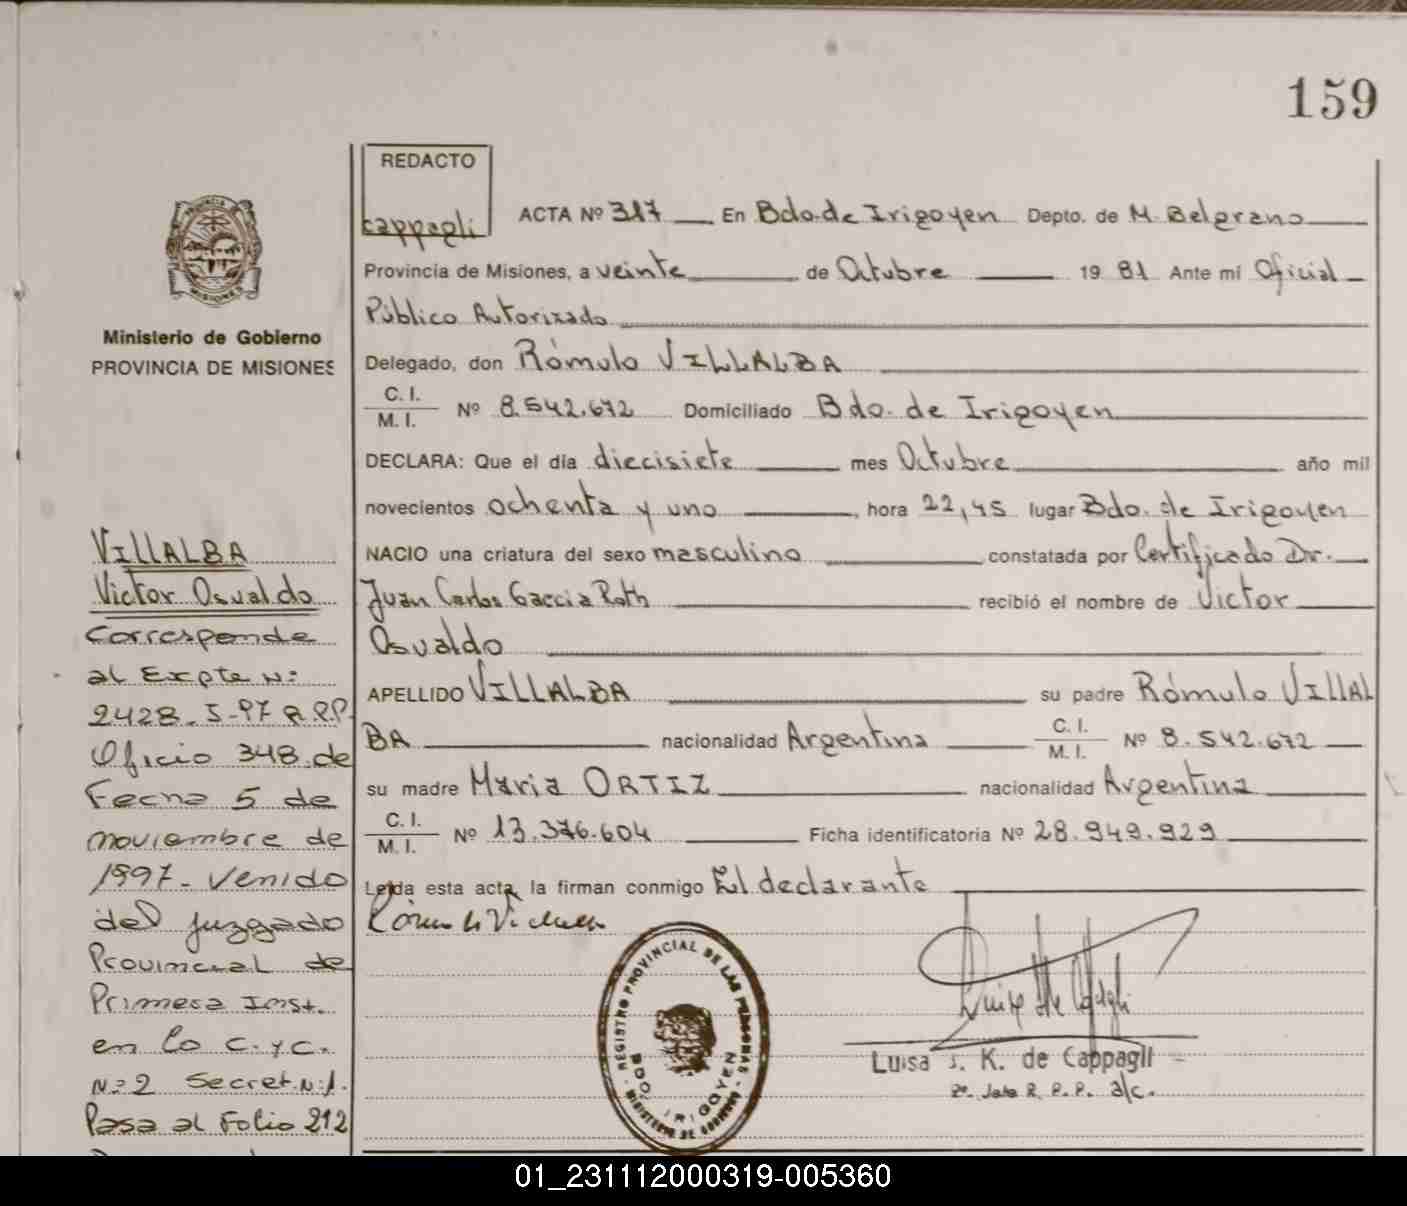 159
REDACTO
cappagli
ACTA Nº 317 En Bdo. de Irigoyen Depto. de M. Belgrano
Provincia de Misiones, a veinte de Octubre 19 81 Ante mí Oficial
Público Autorizado
Delegado, don Rómulo VILLALBA
C. I.
M. I. Nº 8.542.672 Domiciliado Bdo. de Irigoyen
DECLARA: Que el día diecisiete mes Octubre año mil
novecientos ochenta y uno, hora 22,45 lugar Bdo. de Irigoyen
NACIO una criatura del sexo masculino constatada por Certificado Dr.
Juan Carlos Garcia Roth recibió el nombre de Victor
Osvaldo
APELLIDO VILLALBA su padre Rómulo VILLAL
BA nacionalidad Argentina C. I.
M. I. Nº 8.542.672
su madre Maria ORTIZ nacionalidad Argentina
C. I.
M. I. Nº 13.376.604 Ficha identificatoria Nº 28.949.929
Leída esta acta, la firman conmigo El declarante
REGISTRO PROVINCIAL DE LAS PERSONAS
BDO. IRIGOYEN
MINISTERIO DE GOBIERNO
Luisa J. K. de Cappagli
R. P. P. a/c.
PROVINCIA DE
MISIONES
Ministerio de Gobierno
PROVINCIA DE MISIONES
VILLALBA
Victor Osvaldo
Corresponde
al Expte N:
2428-S-97 R.P.P.
Oficio 348 de
Fecha 5 de
noviembre de
1997- venido
del juzgado
Provincial de
Primera Inst.
en lo C. y C.
N:2 Secret. N:1.
Pasa al Folio 212
01_231112000319-005360